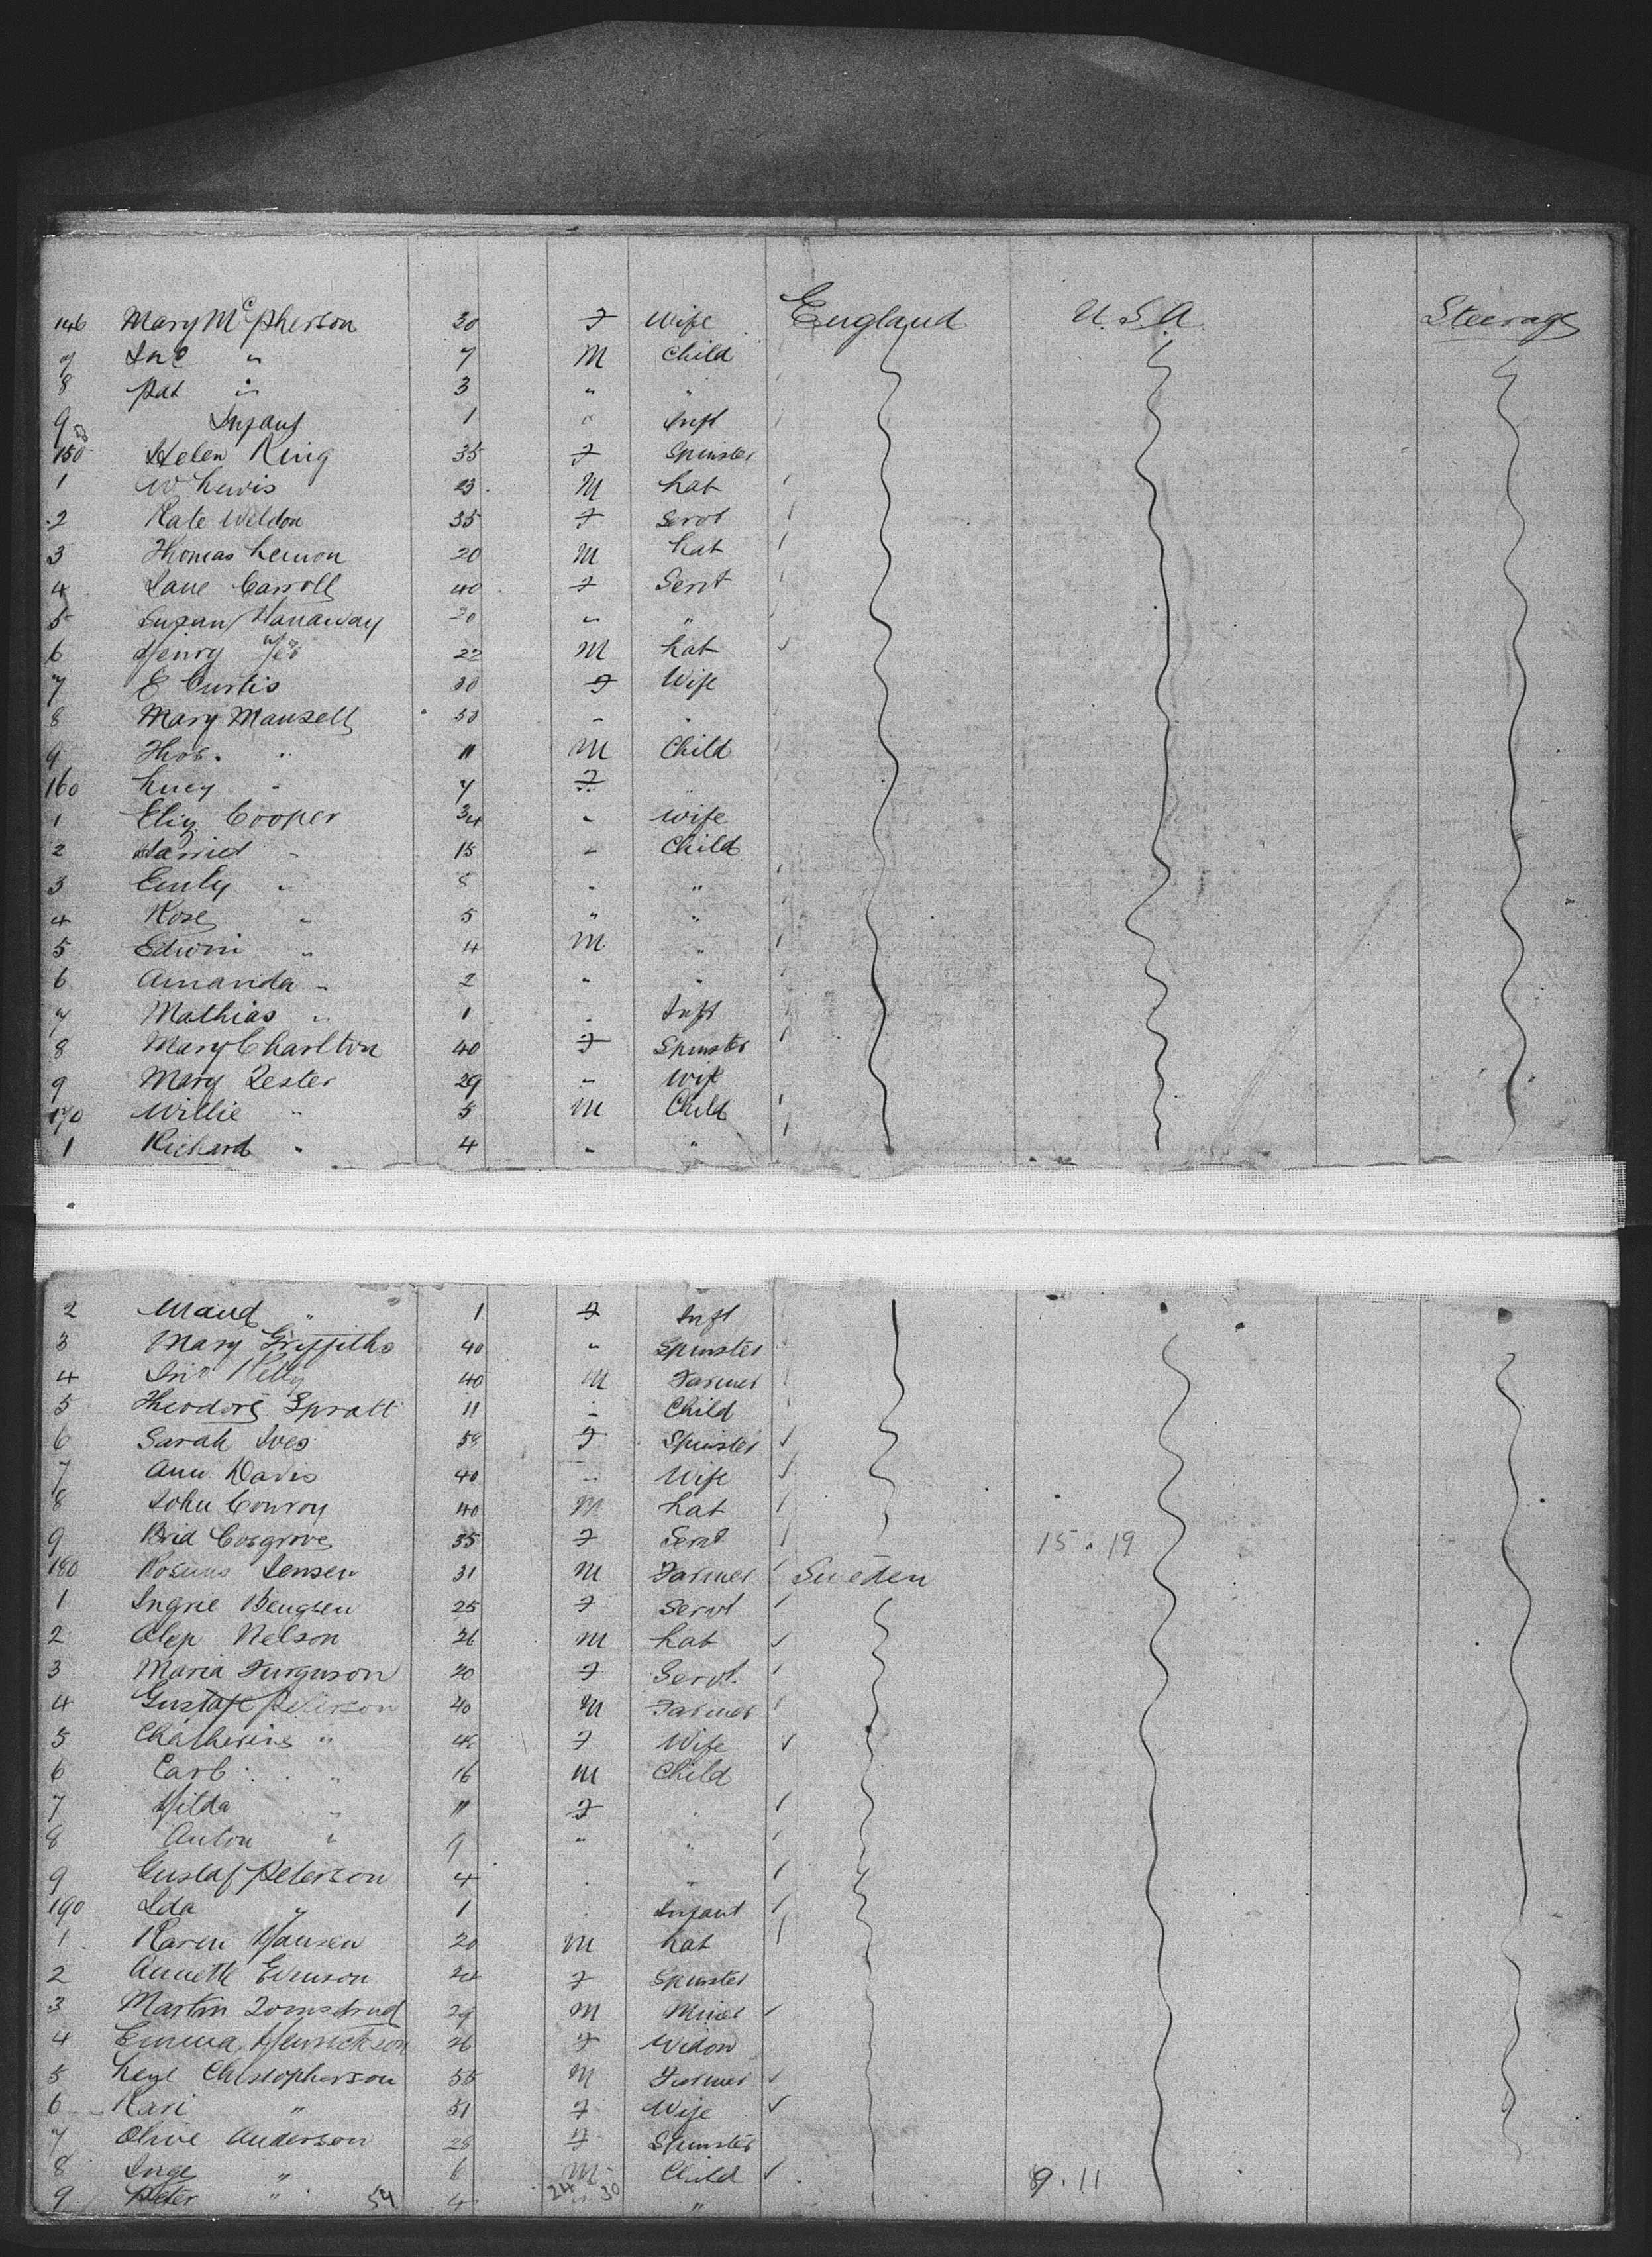 146 Mary McPherson 30 F Wife England U.S.A. Steerage
7 Jno " 7 M Child
8 Pat " 3 " "
9 Infant 1 " Inft
150 Helen King 35 F Spinster
1 W Lewis 23 M Lab
2 Kate Weldon 35 F Servt
3 Thomas Lemon 20 M Lab
4 Jane Carroll 40 F Servt
5 Susan Hanaway 20 " "
6 Henry Yeo 22 M Lab
7 E Curtis 30 F Wife
8 Mary Mansell 50 " "
9 Thos. " 11 M Child
160 Lucy " 7 F "
1 Eliz Cooper 34 " Wife
2 Harriet " 15 " Child
3 Emily " 8 " "
4 Rose " 5 " "
5 Edwin " 4 M "
6 Amanda " 2 " "
7 Mathias " 1 " Inft
8 Mary Charlton 40 F Spinster
9 Mary Lester 29 " Wife
170 Willie " 5 M Child
1 Richard " 4 " "
2 Maud " 1 F Inft
3 Mary Griffiths 40 " Spinster
4 Jno Kelly 40 M Farmer
5 Theodore Spratt 11 " Child
6 Sarah Ives 58 F Spinster
7 Ann Davis 40 " Wife
8 John Conroy 40 M Lab
9 Brid Cosgrove 35 F Servt 15.19
180 Jensen 31 M Farmer Sweden
1 Ingrie Bengsen 25 F Servt
2 Olep Nelson 26 M Lab
3 Maria Furguson 20 F Servt.
4 Gustaf Peterson 40 M Farmer
5 Chatherine " F Wife
6 Carl " 16 M Child
7 Hilda " 11 F "
8 Anton " 9 " "
9 Gustaf Peterson 4 " "
190 Ida " 1 " Infant
1 Karen Hansen 20 M Lab
2 Annette Evenson 24 F Spinster
3 Martin 29 M Miner
4 Emma Henrickson 26 F Widow
5 Christopherson 55 M Farmer
6 Kari " 51 F Wife
7 Olive Anderson 28 F Spinster
8 Inge " 6 M Child 9.11
9 Peter " 54 4 24 30 "